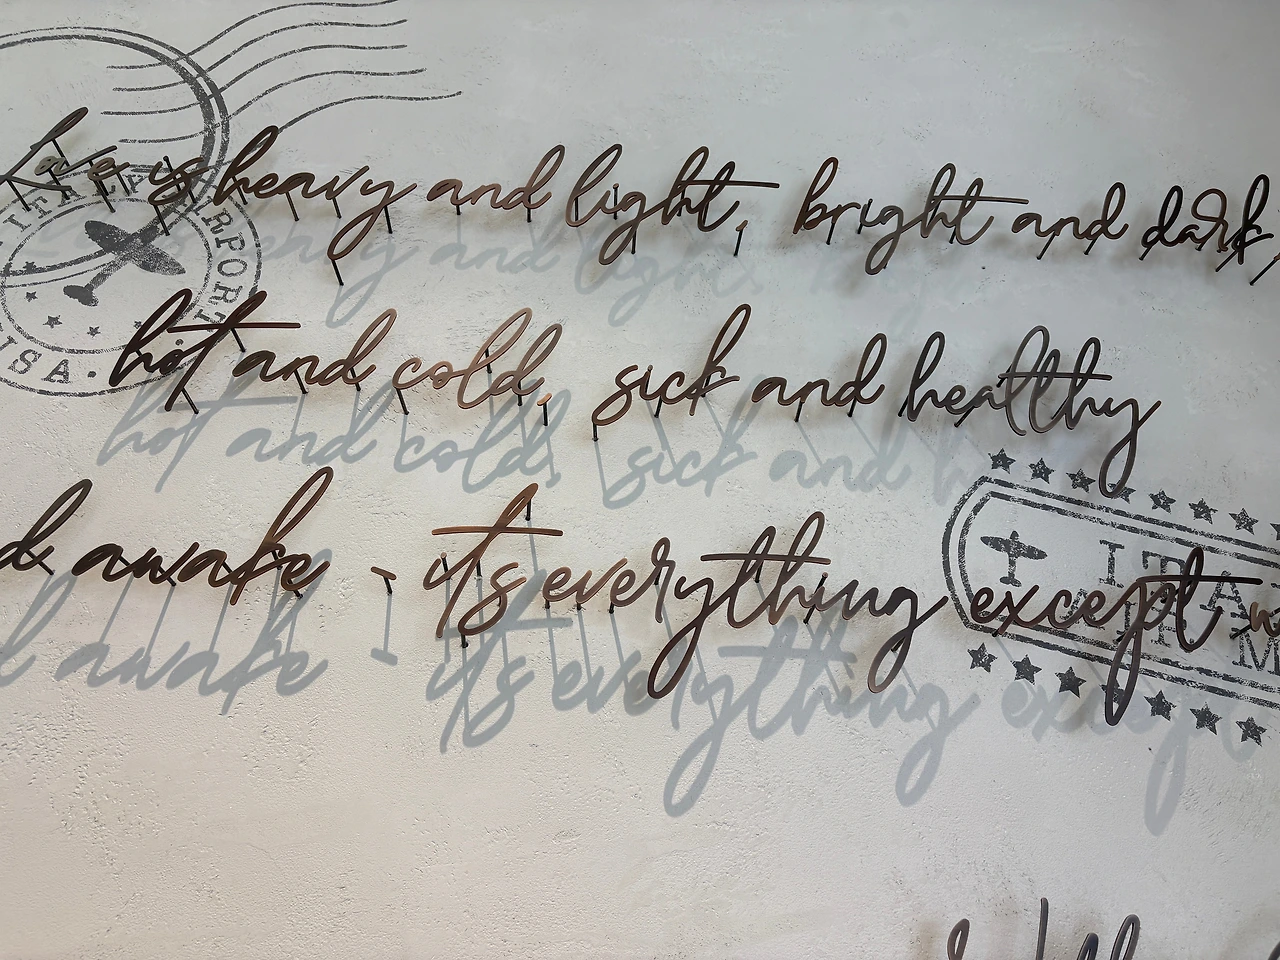 Love is heavy and light, bright and dark,
hot and cold, sick and healthy
d awake - it's everything except
USA